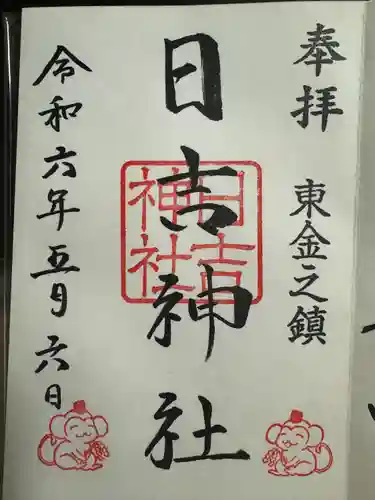 奉拝
東金之鎮
日吉神社
日吉神社
令和六年五月六日